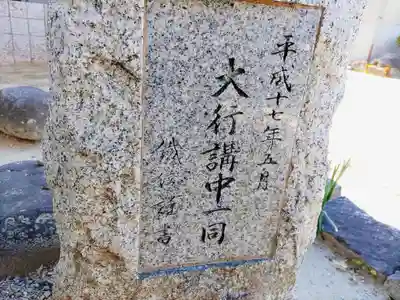 平成十七年五月
大行講中一同